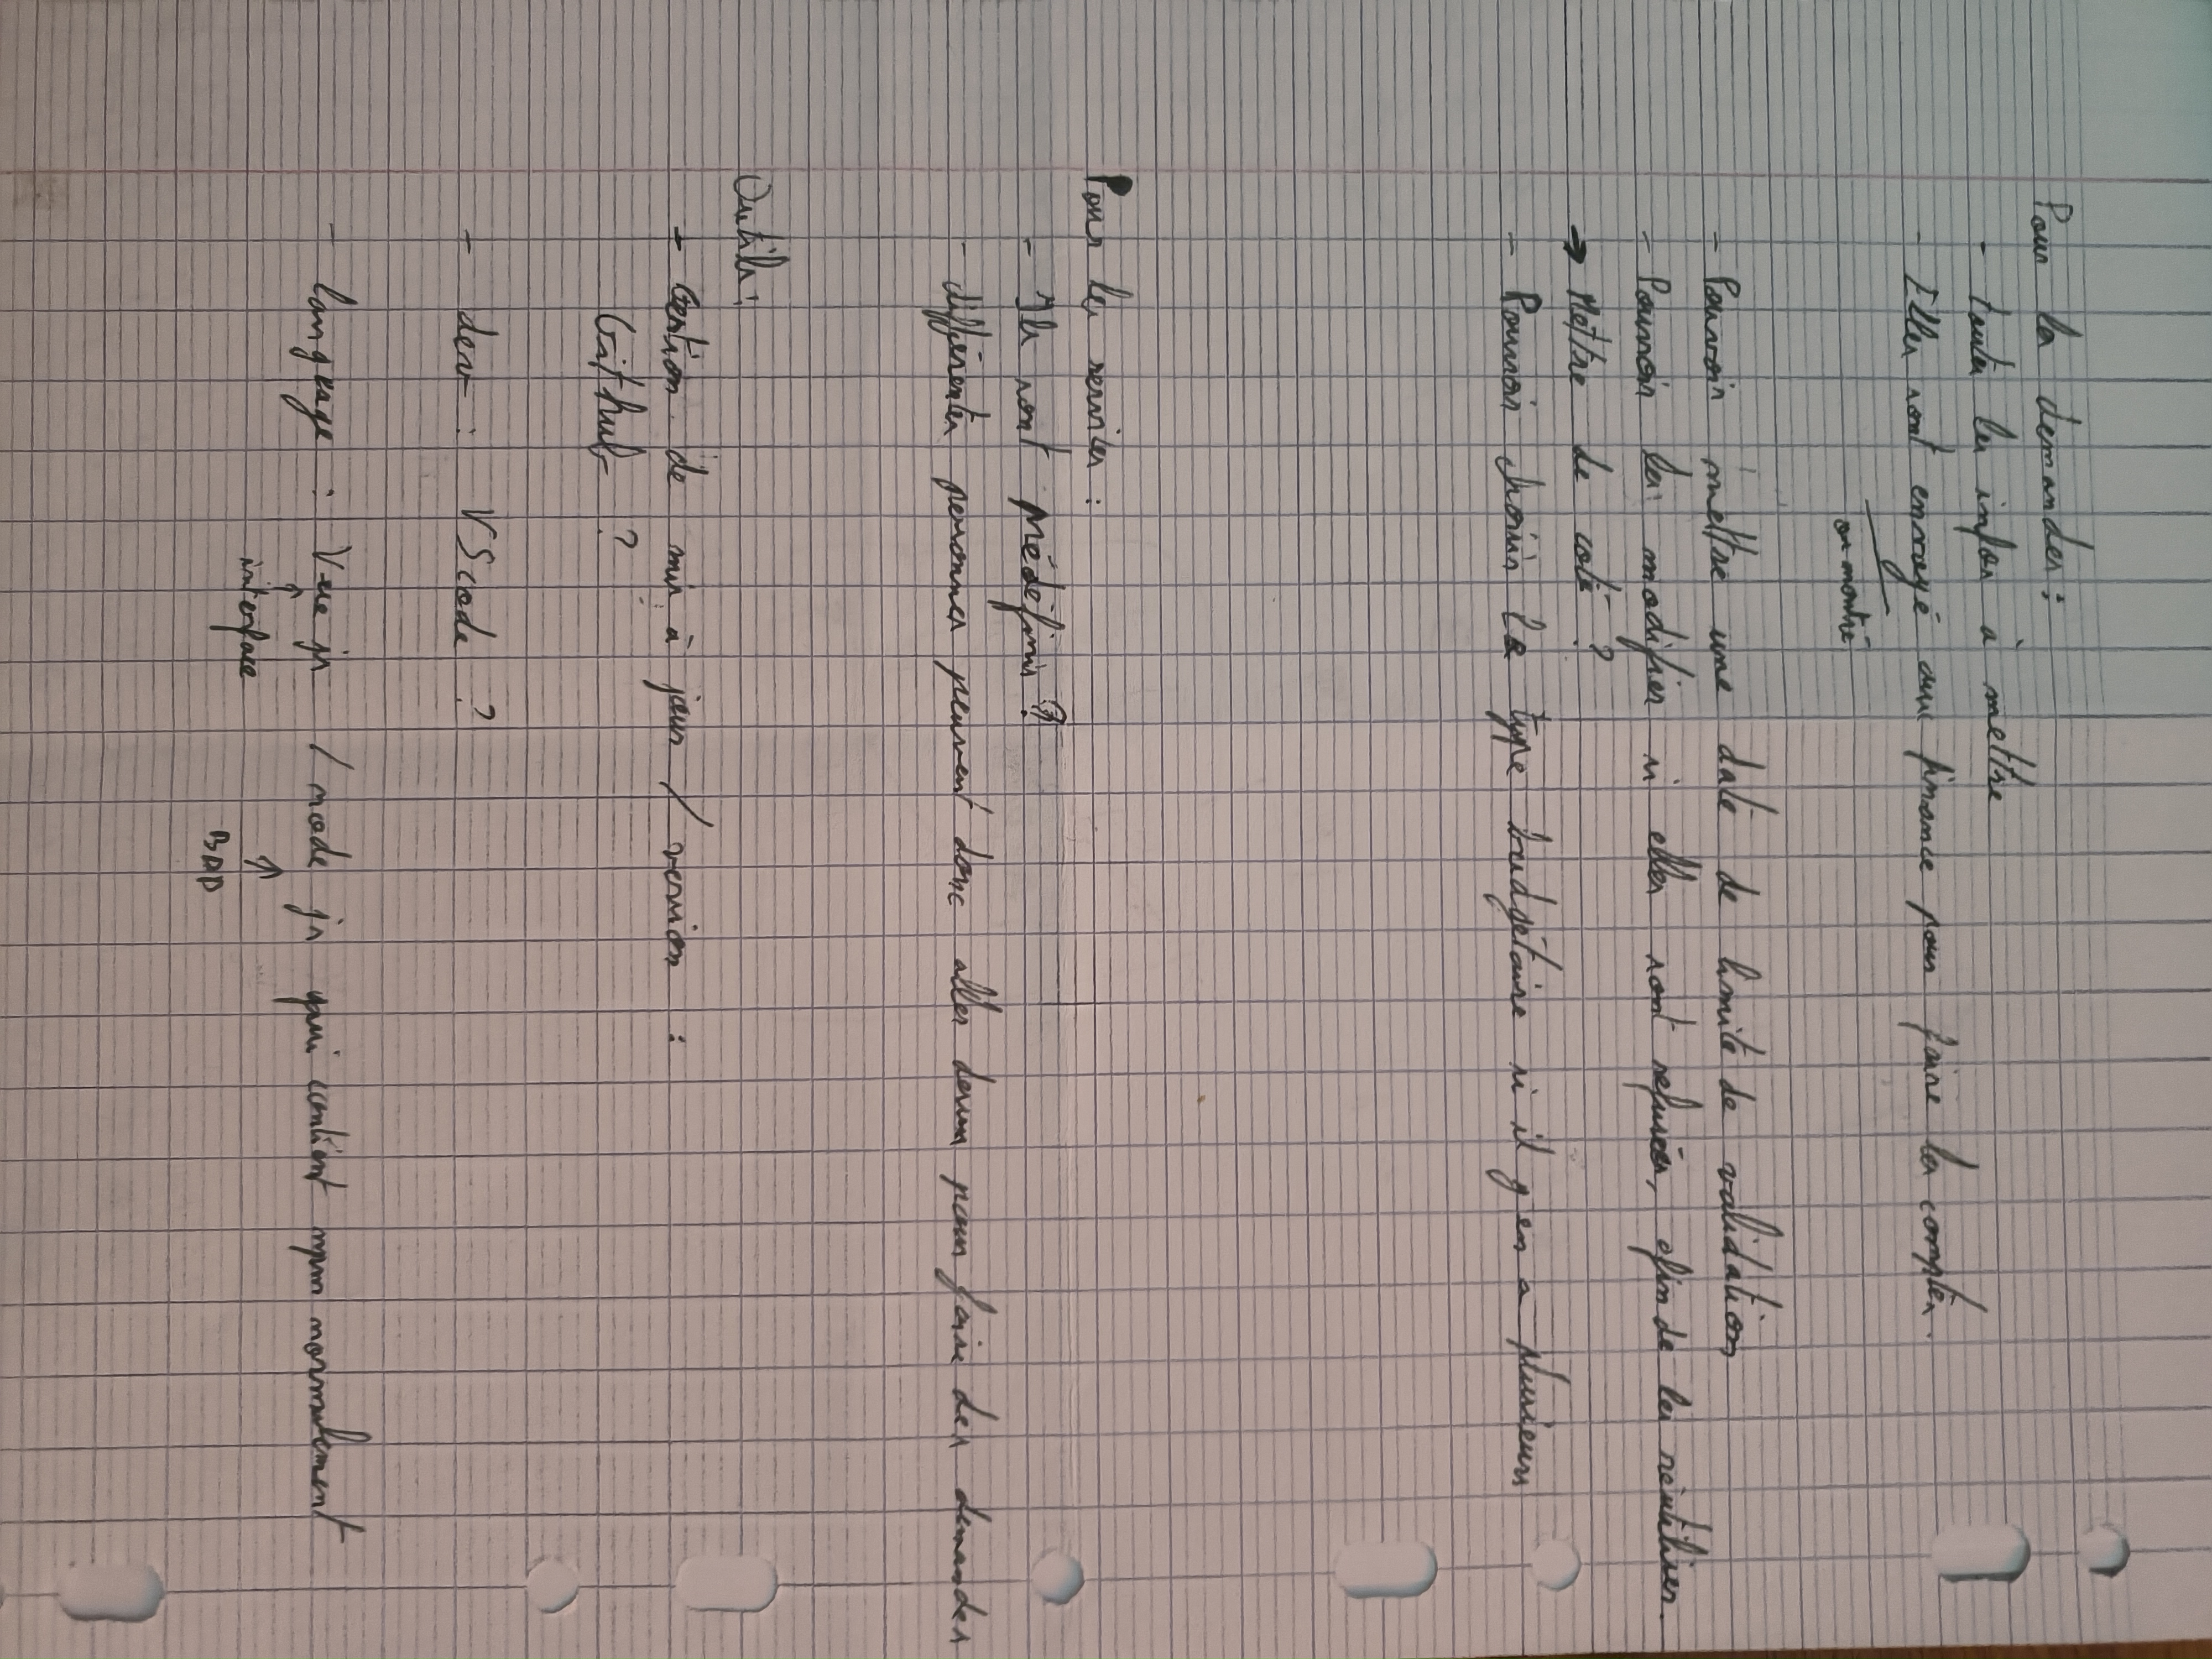 Pour les demandes :
- toutes les infos à mettre
- Elles sont envoyé aux finance pour faire les comptes.
ou montré
- Pouvoir mettre une date de limite de validation
- Pouvoir les modifier si elles sont refusées, afin de les réutiliser.
→ Mettre de coté ?
- Pouvoir choisir le type budgétaire si il y en a plusieurs
Pour les services :
- Ils sont prédéfinis ?
- différentes personnes peuvent donc aller dessus pour faire des demandes
Outils :
- Gestion de mis à jour / version :
Github ?
- dev : VScode ?
- language : Vue js / node js qui contient npm normalement
↑ interface ↑
BDD